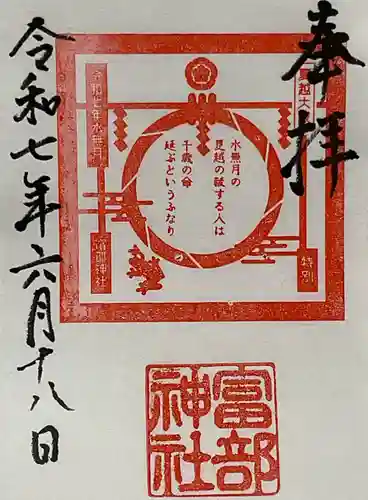 奉拝
夏越大
特別
水無月の
夏越の祓する人は
千歳の命
延ぶというふなり
令和七年水無月
富部神社
富部
神社
令和七年六月十八日